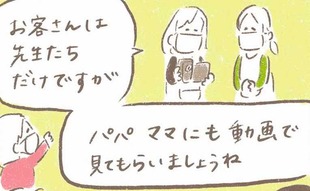 お客さんは
先生たち
だけですが
パパ ママにも 動画で
見てもらいましょうね